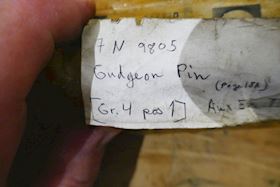 7 N 9805
Gudgeon Pin
(Page 15A)
[Gr. 4 pos 1] Aux E